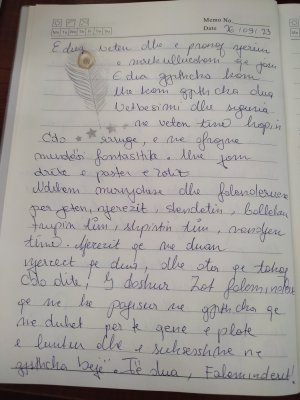 Memo No.
Mo Tu We Th Fr Sa Su
Date 16/09/23
E dua veten dhe e pranoj veten
e mrekullueshme qe jam
E dua gjithcka kam
Une kam gjithcka dua
Vetbesimi dhe siguria
ne veten time hapin
Cdo rruge, e me ofrojne
mundesi fantastike. Une jam
drite e paster e zotit
Ndihem mirenjohese dhe falenderuese
per jeten, njerezit, shendetin, bollekun
trupin tim, shpirtin tim,
time. Njerezit qe me duan
njerezit qe dua, dhe ata qe takoj
Cdo dite, I dashur Zot faleminderit
qe me ke pajisur me gjithcka qe
me duhet per te qene e plote
e lumtur dhe e suksesshme ne
gjithcka bëjë. Të dua, Faleminderit!